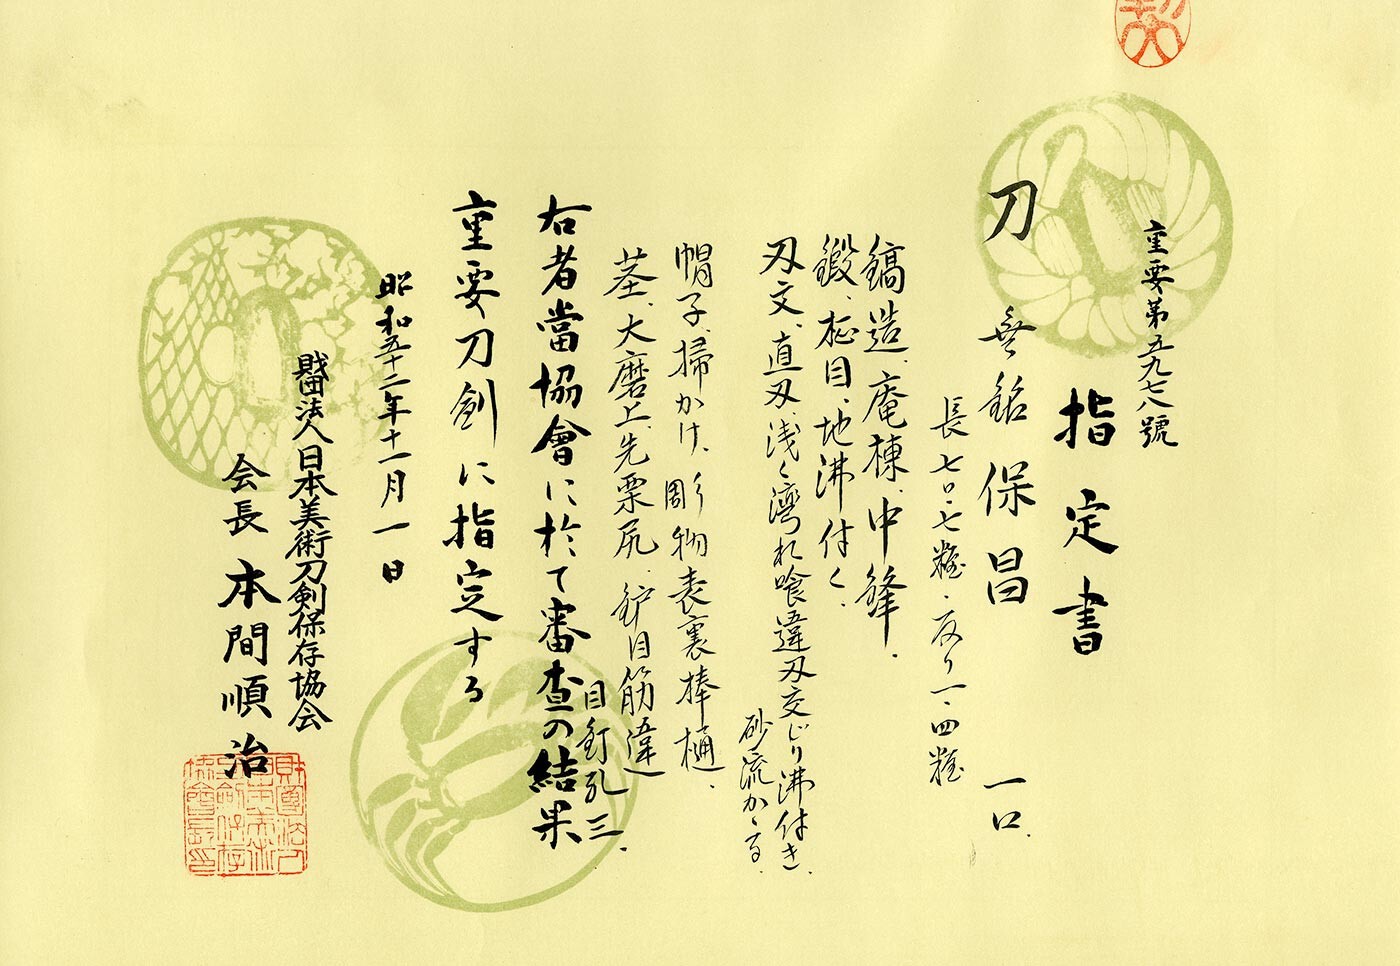 重要第五九七八號
指定書
刀 無銘 保昌 一口
長七〇・七糎・反り一・四糎
鎬造、庵棟、中鋒・
鍛、柾目、地沸付く・
刃文、直刃、浅く湾れ喰違刃交じり沸付き
砂流かゝる・
帽子、掃かけ、彫物表裏棒樋・
茎、大磨上、先栗尻、鈩目筋違
目釘孔三・
右者當協會に於て審査の結果
重要刀剣に指定する
昭和五十二年十一月一日
財団法人日本美術刀剣保存協会
会長 本間順治